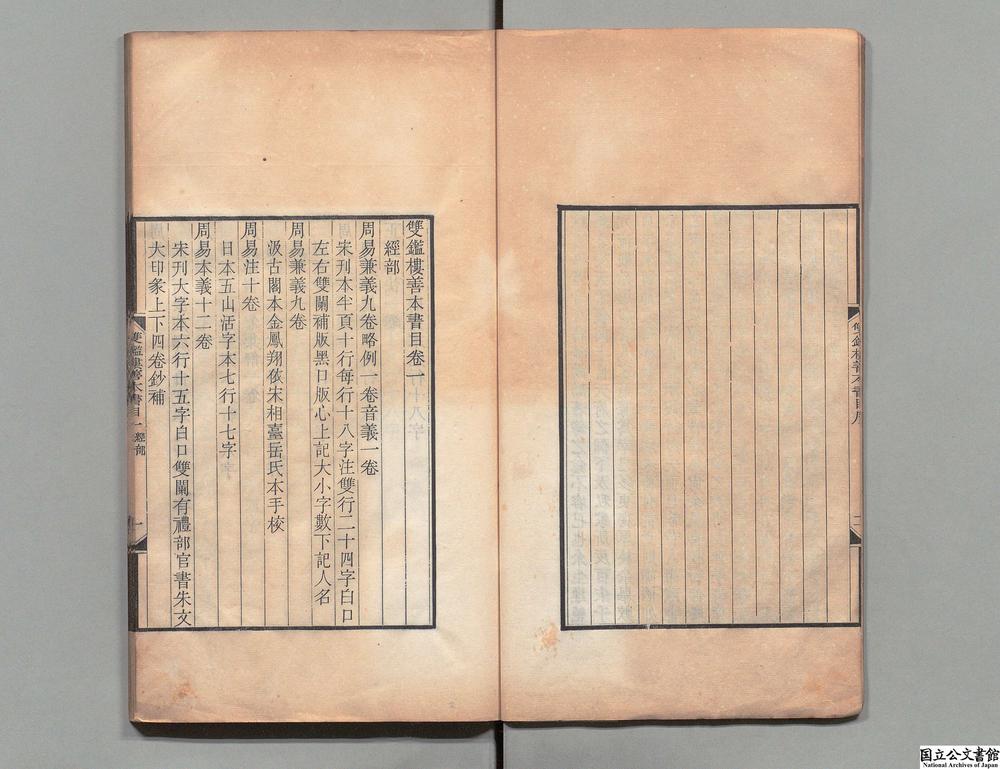 雙鑑樓善本書目序
二
雙鑑樓善本書目卷一
經部
周易兼義九卷略例一卷音義一卷
宋刊本半頁十行每行十八字注雙行二十四字白口
左右雙闌補版黑口版心上記大小字數下記人名
周易兼義九卷
汲古閣本金鳳翔依宋相臺岳氏本手校
周易注十卷
日本五山活字本七行十七字
周易本義十二卷
宋刊大字本六行十五字白口雙闌有禮部官書朱文
大印彖上下四卷鈔補
雙鑑樓善本書目一 經部
一
国立公文書館
National Archives of Japan